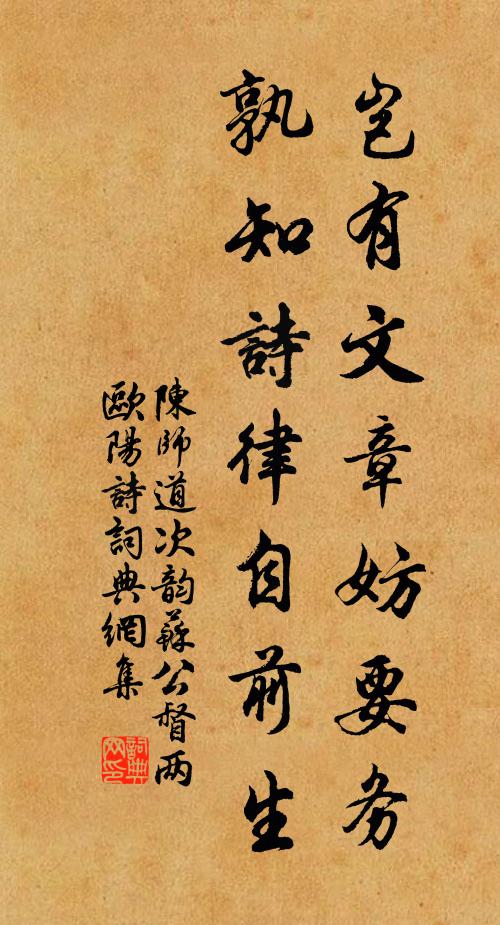 岂有文章妨要务
孰知詩律自前生
陳師道次韵蘇公督两
歐陽詩詞典網集
詞典网印